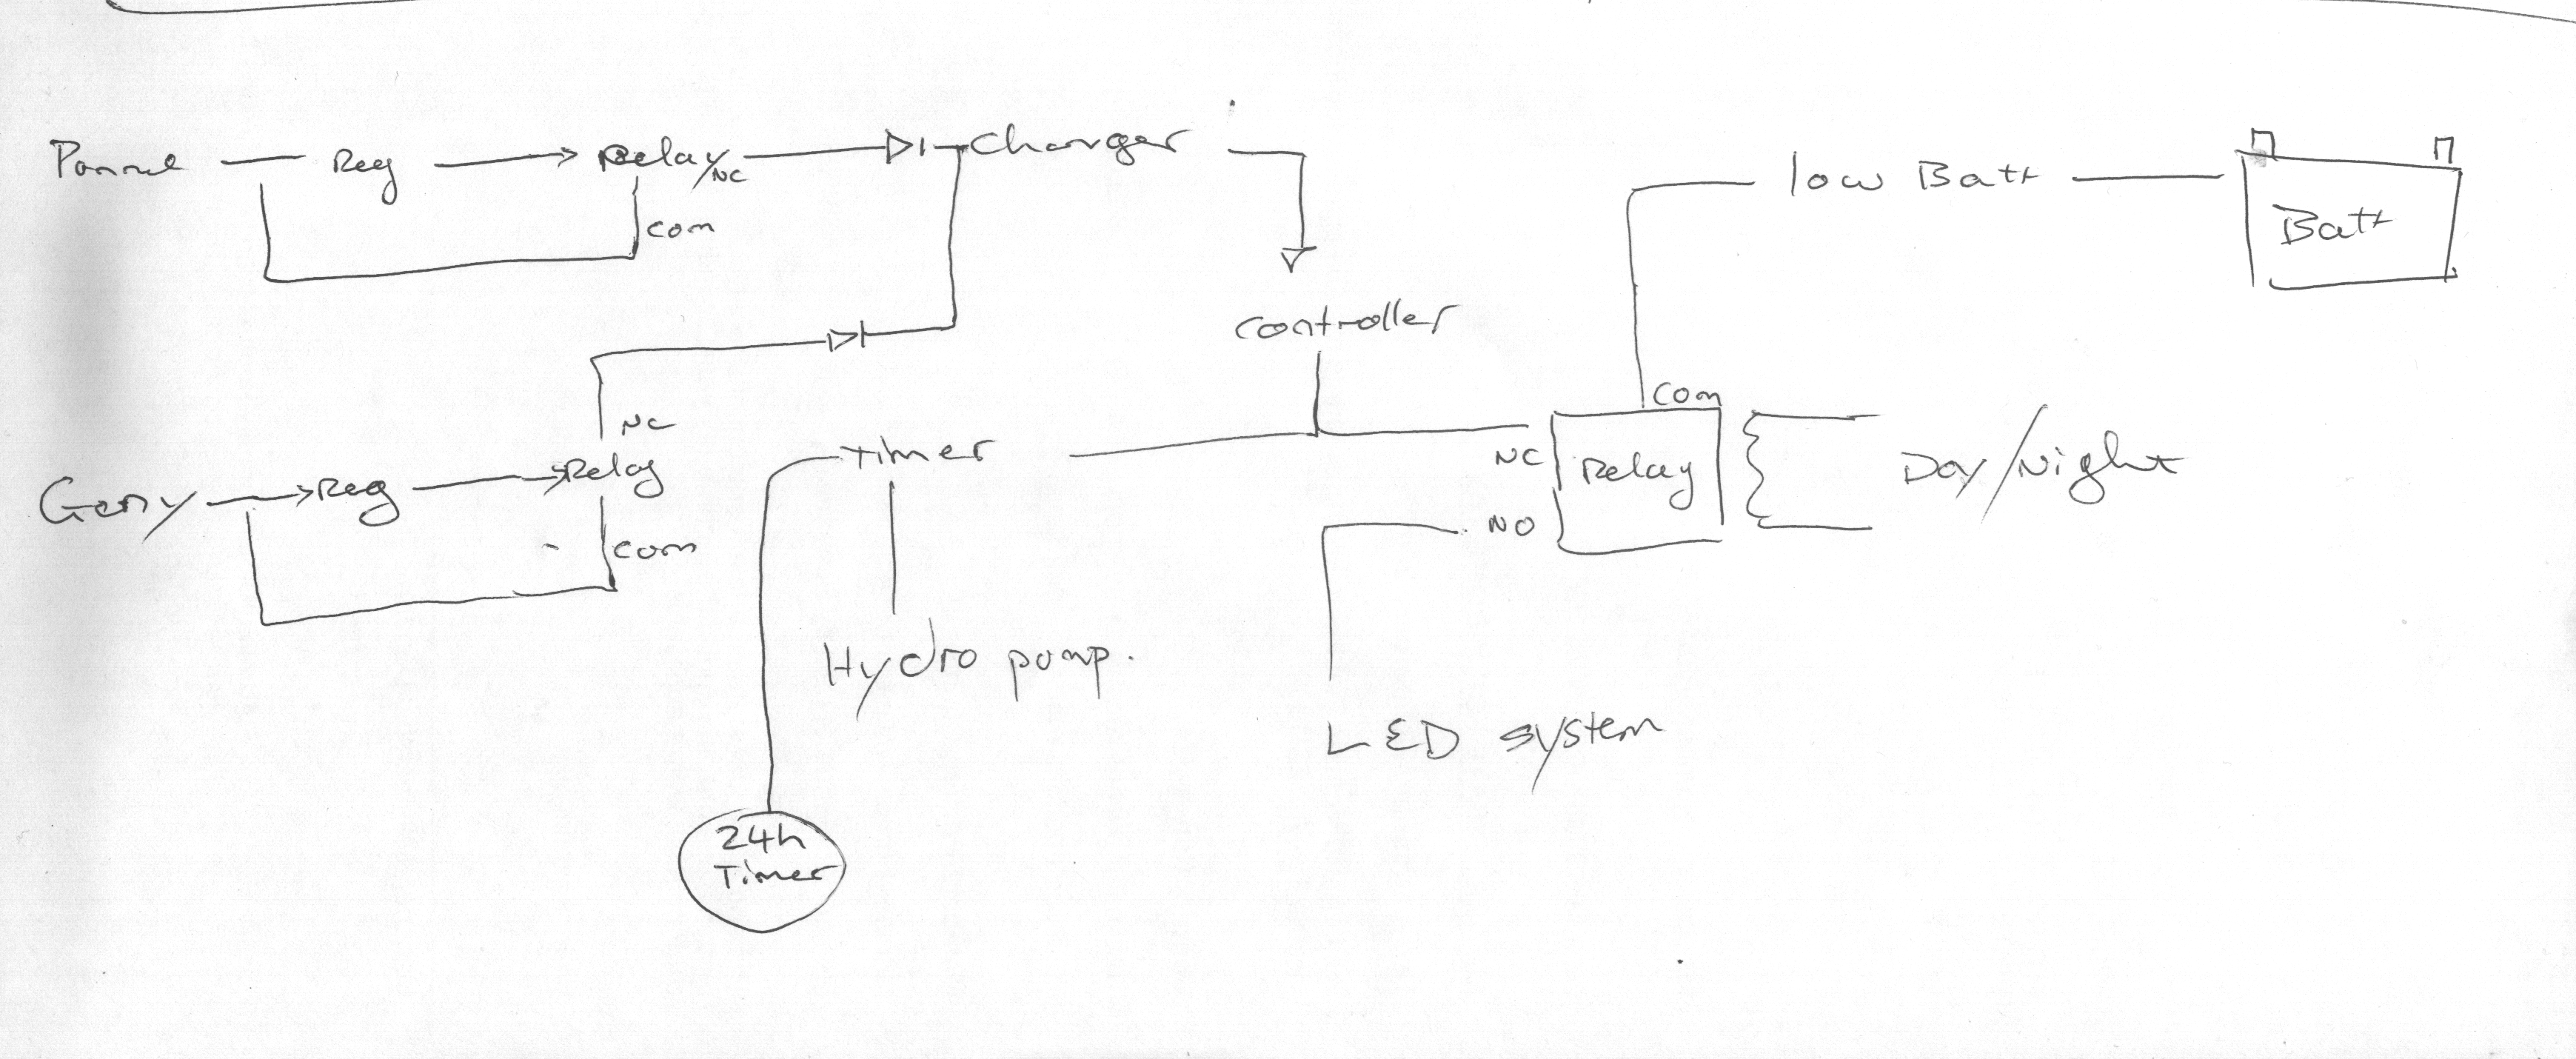 Pannel Reg Relay/NC Charger
com
low Batt
Batt
controller
NC
Geny Reg Relay
com
Timer
Hydro pump.
24h
Timer
com
NC
NO
Relay
Day/Night
LED system